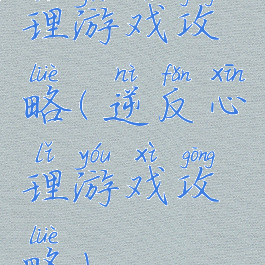 理游戏攻
lüè nì fǎn xīn
略(逆反心
lǐ yóu xì gōng
理游戏攻
lüè
略)